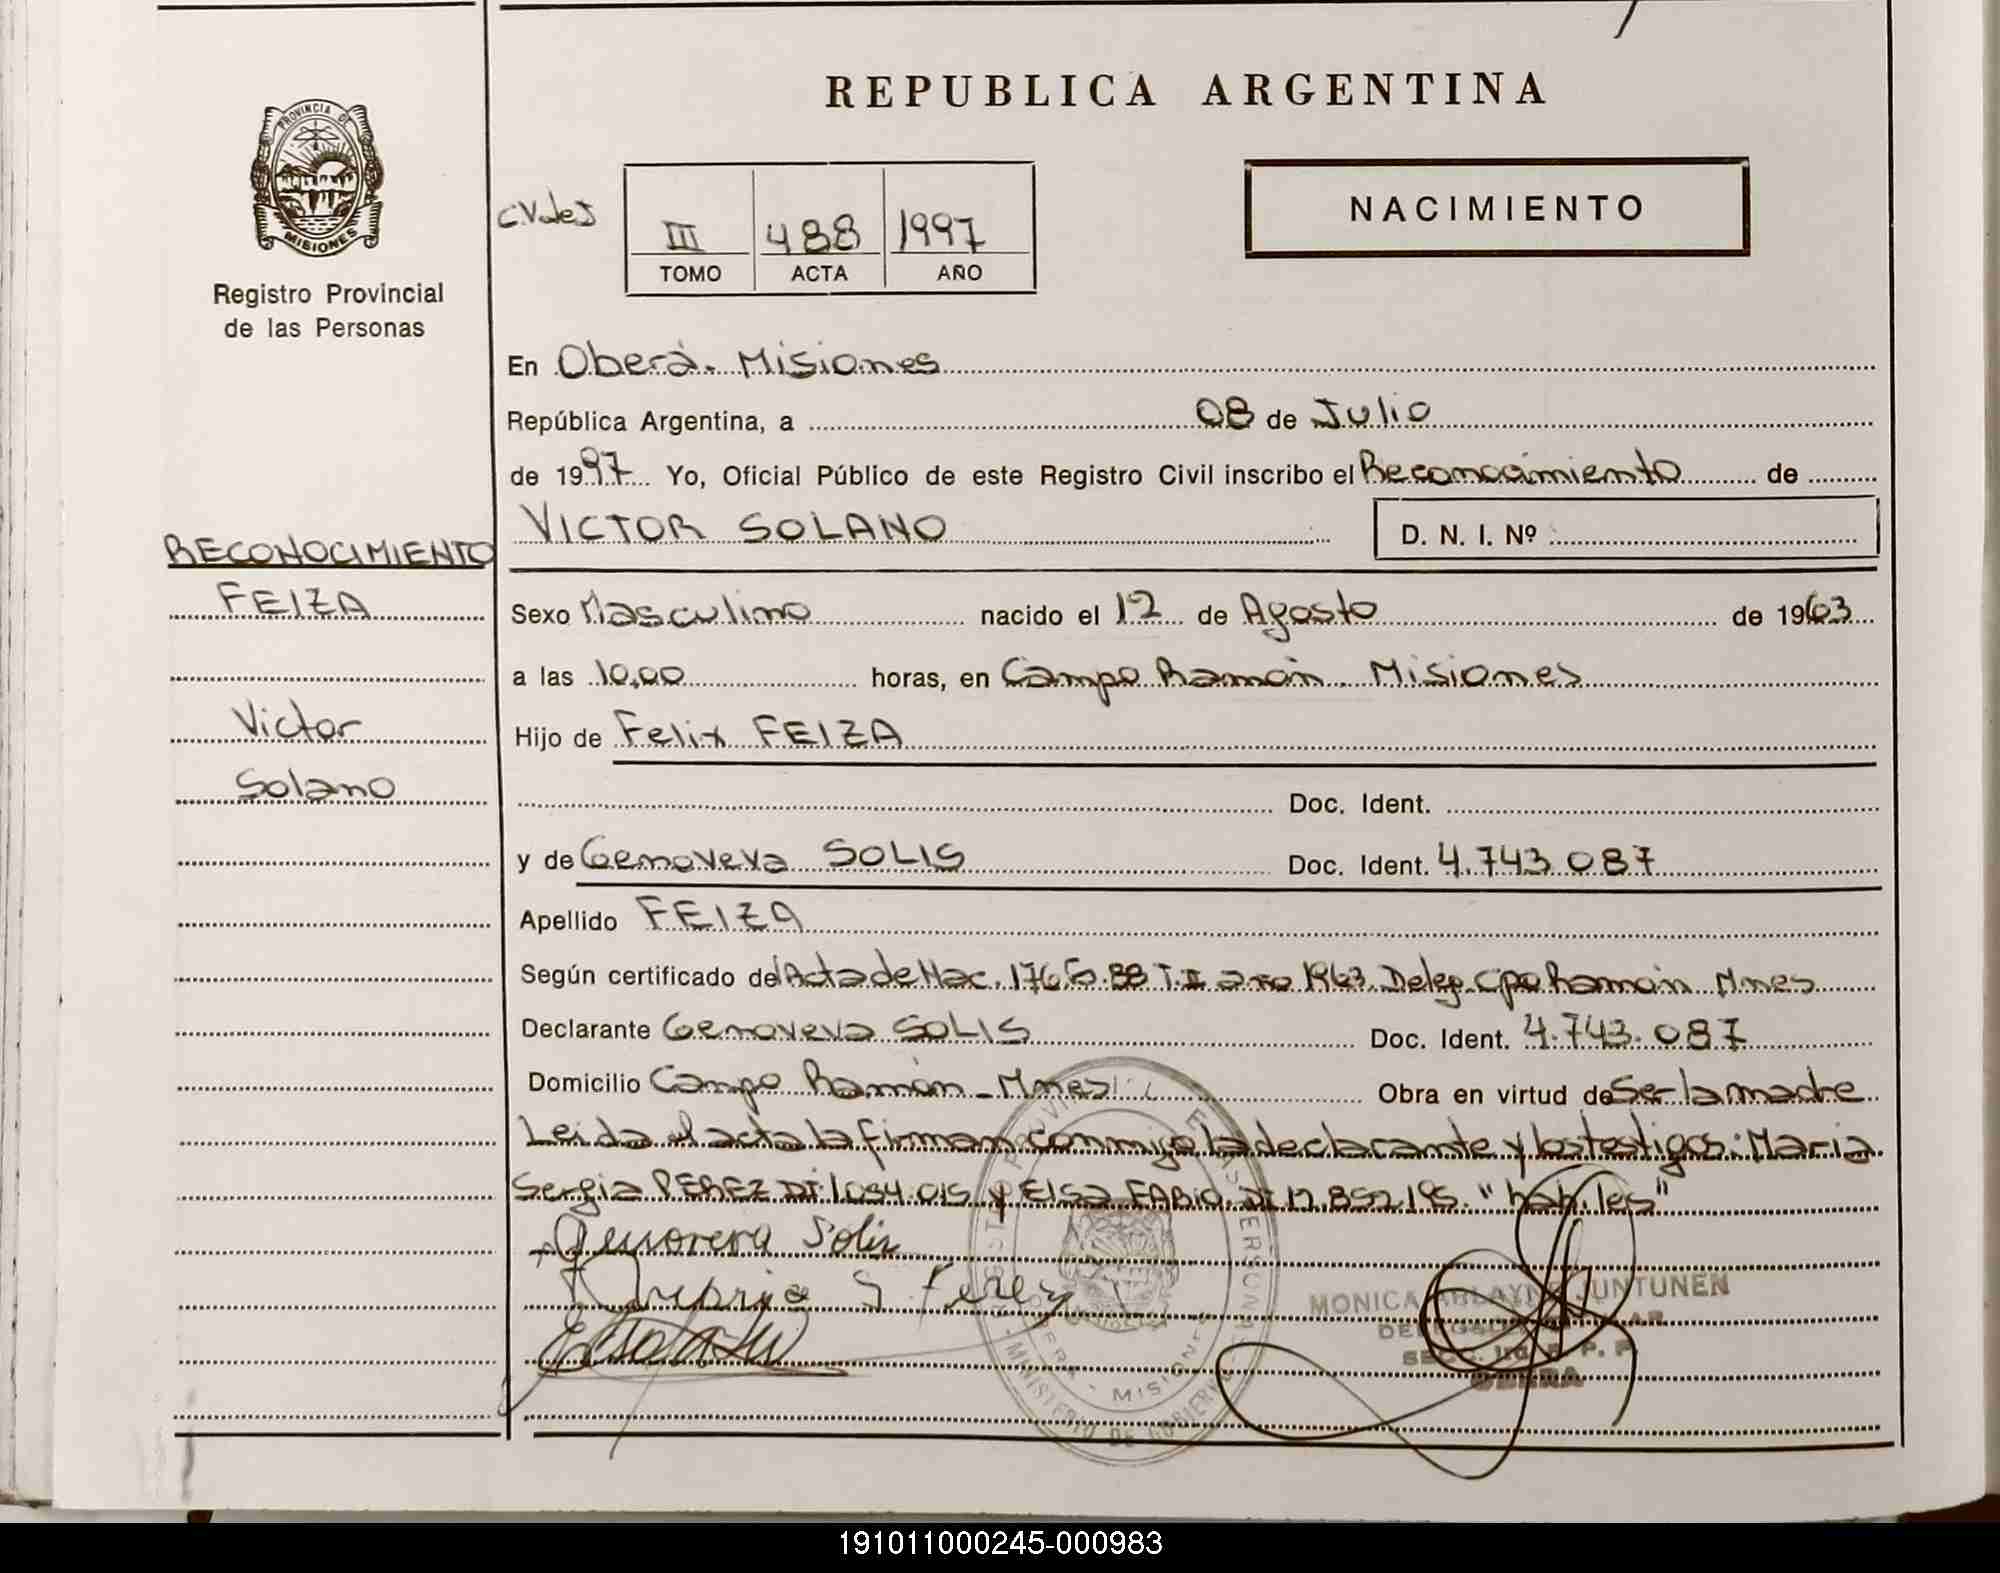 REPUBLICA ARGENTINA
PROVINCIA DE
MISIONES
Registro Provincial
de las Personas
III 488 1997
TOMO ACTA AÑO
NACIMIENTO
En Oberá. Misiones
República Argentina, a 08 de Julio
de 1997 Yo, Oficial Público de este Registro Civil inscribo el Reconocimiento de
VICTOR SOLANO D. N. I. Nº
RECONOCIMIENTO
FEIZA
Victor
Solano
Sexo Masculino nacido el 12 de Agosto de 1963
a las 10,00 horas, en Campo Ramón. Misiones
Hijo de Felix FEIZA
Doc. Ident.
y de Genoveva SOLIS Doc. Ident. 4.743.087
Apellido FEIZA
Según certificado del Acta de Nac. 176 F. 88 T. II año 1963. Deleg. Cpo Ramón Mnes
Declarante Genoveva SOLIS Doc. Ident. 4.743.087
Domicilio Campo Ramón - Mnes Obra en virtud de Ser la madre
Leida el acta la firman conmigo la declarante y los testigos: Maria
Sergia PEREZ DI. 1.054.015 y Elsa FABIO. DI 17.852.195. "habiles"
Genoveva Solis
S. Perez
MONICA JUNTUNEN
OBERA
MISIONES
MINISTERIO DE GOBIERNO
191011000245-000983